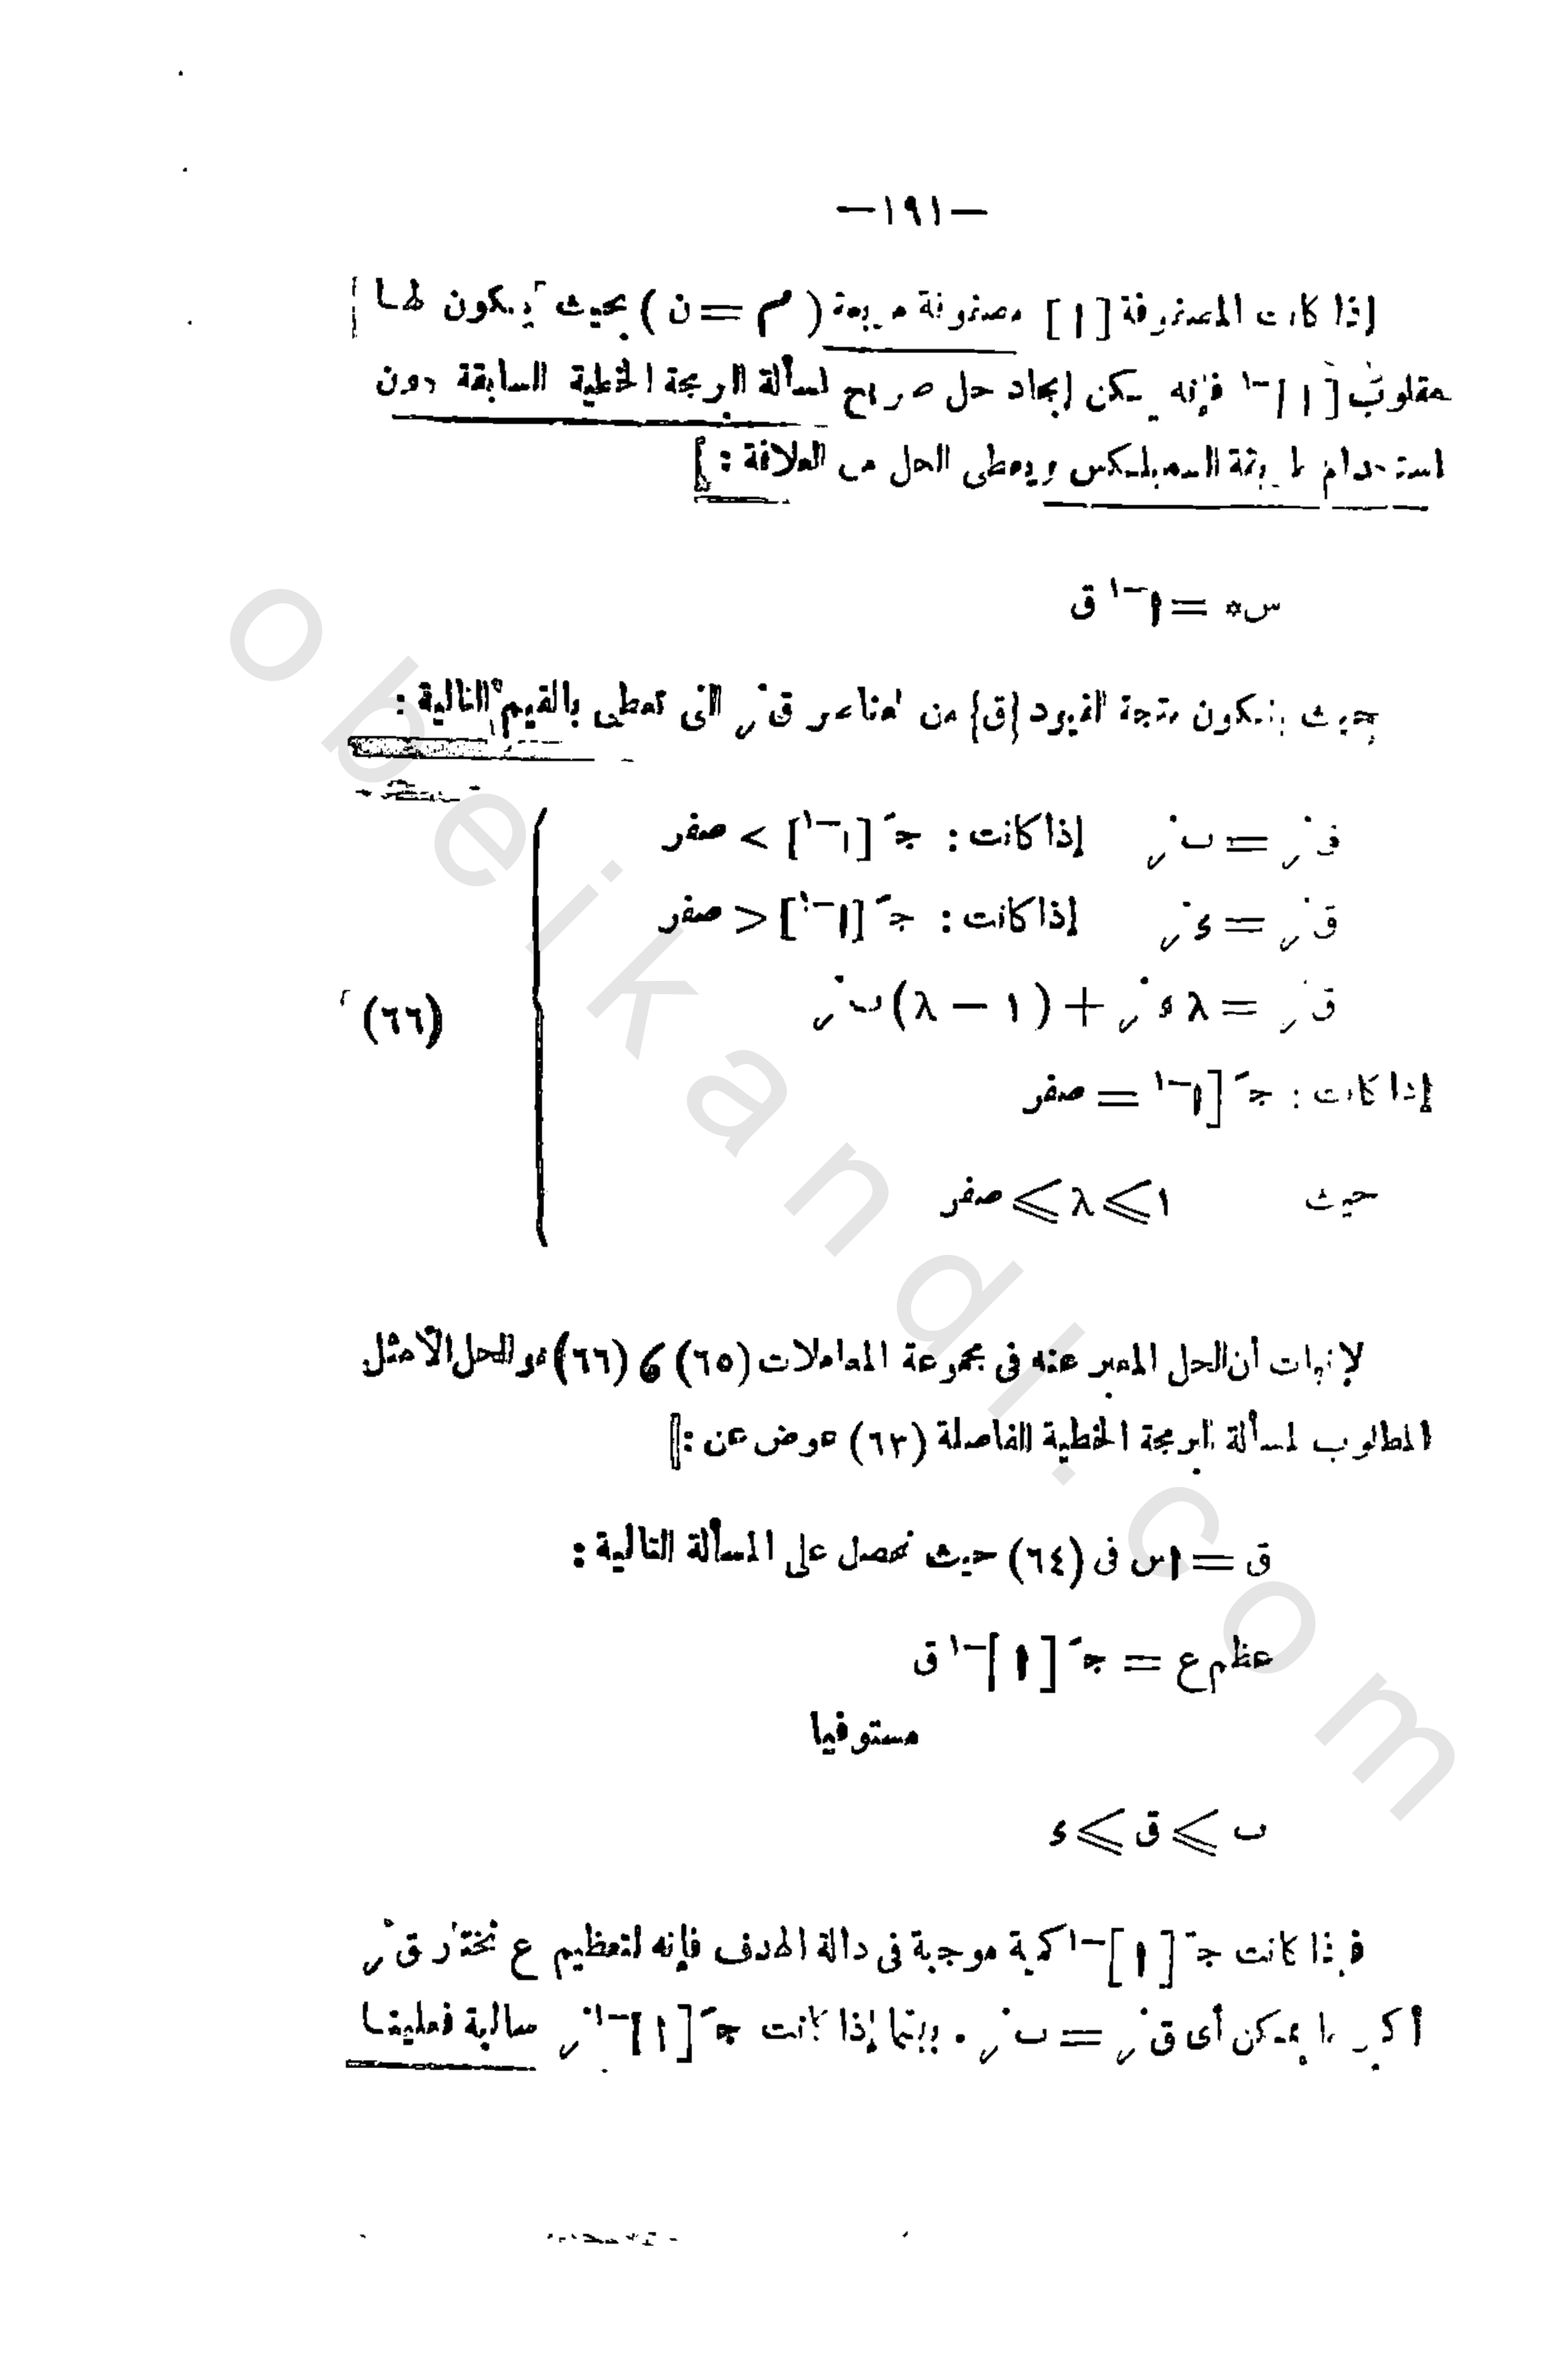 —١٩١—
إذا كانت المصفوفة [ا] مصفوفة مربعة (م = ن) بحيث يكون لها
مقلوب [ا]⁻¹ فإنه يمكن إيجاد حل صريح لمسألة البرمجة الخطية السابقة دون
استخدام طريقة السمبلكس ويعطى الحل من العلاقة :
س* = ا⁻¹ ق
حيث يتكون متجة القيود {ق} من العناصر قر التى تعطى بالقيم التالية :
قر = بر إذا كانت : جـَ [ا⁻¹] > صفر
قر = ءر إذا كانت : جـَ [ا⁻¹] < صفر
قر = λ ءر + (١ − λ) بر
(٦٦)
إذا كانت : جـَ [ا⁻¹ = صفر
حيث ١ ⩾ λ ⩾ صفر
لإثبات أن الحل المعبر عنه فى مجموعة المعاملات (٦٥) ، (٦٦) هو الحل الأمثل
المطلوب لمسألة البرمجة الخطية الفاصلة (٦٣) عوض عن :
ق = اس فى (٦٤) حيث نحصل على المسألة التالية :
عظم ع = جـَ [ا]⁻¹ ق
مستوفيا
ب ⩾ ق ⩾ ء
فإذا كانت جـَ [ا]⁻¹ كمية موجبة فى دالة الهدف فإنه لتعظيم ع نختار قر
أكبر ما يمكن أى قر = بر . بينما إذا كانت جـَ [ا]⁻¹ر سالبة فعلينا
obeikandl.com